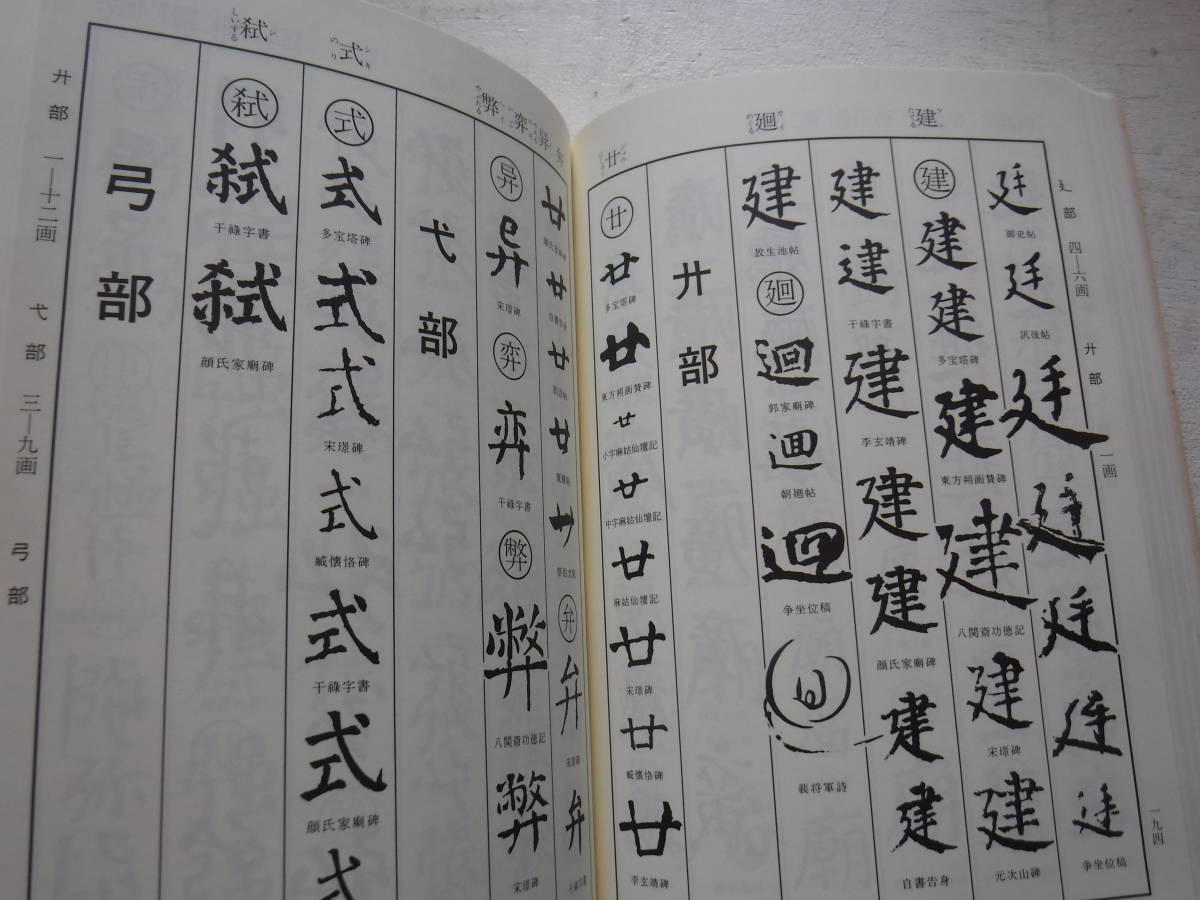 廴部 四―六画 廾部 一画
一九四
建
廻
廿
廷
御史帖
廷
訊後帖
廷
廷
廷
廷
廷
争坐位稿
建
建
建
多宝塔碑
建
東方朔画賛碑
建
八関斎功徳記
建
宋璟碑
建
元次山碑
建
建
干祿字書
建
李玄靖碑
建
建
顔氏家廟碑
建
建
自書告身
建
放生池帖
廻
廻
郭家廟碑
廻
朝廻帖
廻
争坐位稿
廻
裴将軍詩
廾部
廿
廿
多宝塔碑
廿
東方朔画賛碑
廿
小字麻姑仙壇記
廿
中字麻姑仙壇記
廿
麻姑仙壇記
廿
宋璟碑
廿
臧懐恪碑
廿
李玄靖碑
廾部 一―十二画 弋部 三―九画 弓部
弁
异
弈
弊
式
シキ
のり
弑
シ
しいする
廿
顔氏家廟碑
廿
自書告身
廿
廿
廿
弁
弁
宋璟碑
弁
干祿字書
异
异
宋璟碑
弈
弈
干祿字書
弊
弊
八関斎功徳記
弊
宋璟碑
弋部
式
式
多宝塔碑
式
式
宋璟碑
式
臧懐恪碑
式
干祿字書
式
顔氏家廟碑
式
弑
弑
干祿字書
弑
顔氏家廟碑
弓部